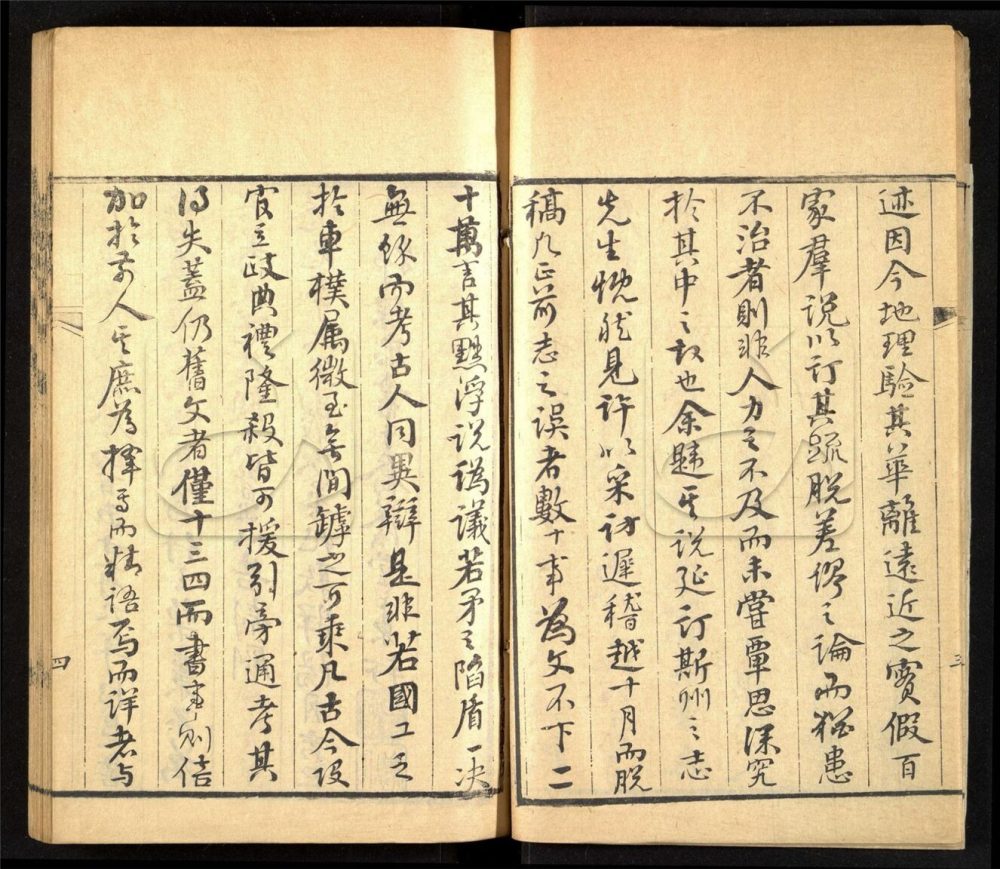 迹因今地理驗其華離遠近之實假百
家羣說以訂其疏脫差繆之論而猶患
不治者則非人力之不及而未嘗覃思深究
於其中之故也余韙其說延訂斯州之志
先生慨然見許以采訪遲稽越十月而脫
稿凡正前志之誤者數十事為文不下二
十萬言其黜浮說譌議若矛之陷盾一決
無餘而考古人同異辯是非若國工之
於車樸屬微至無間罅之可乘凡古今設
官立政典禮隆殺皆可援引旁通考其
得失蓋仍舊文者僅十三四而書事則倍
加於前人其庶為擇焉而精語焉而詳者與
三
四